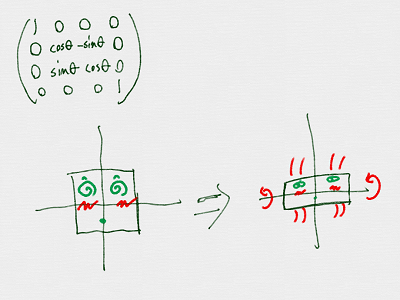 1 0 0 0
0 cosθ -sinθ 0
0 sinθ cosθ 0
0 0 0 1